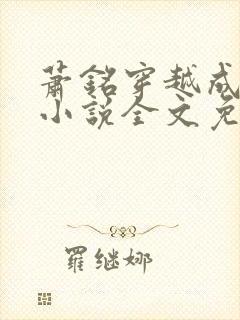 萧铭穿越成
小说全文免
羅继娜